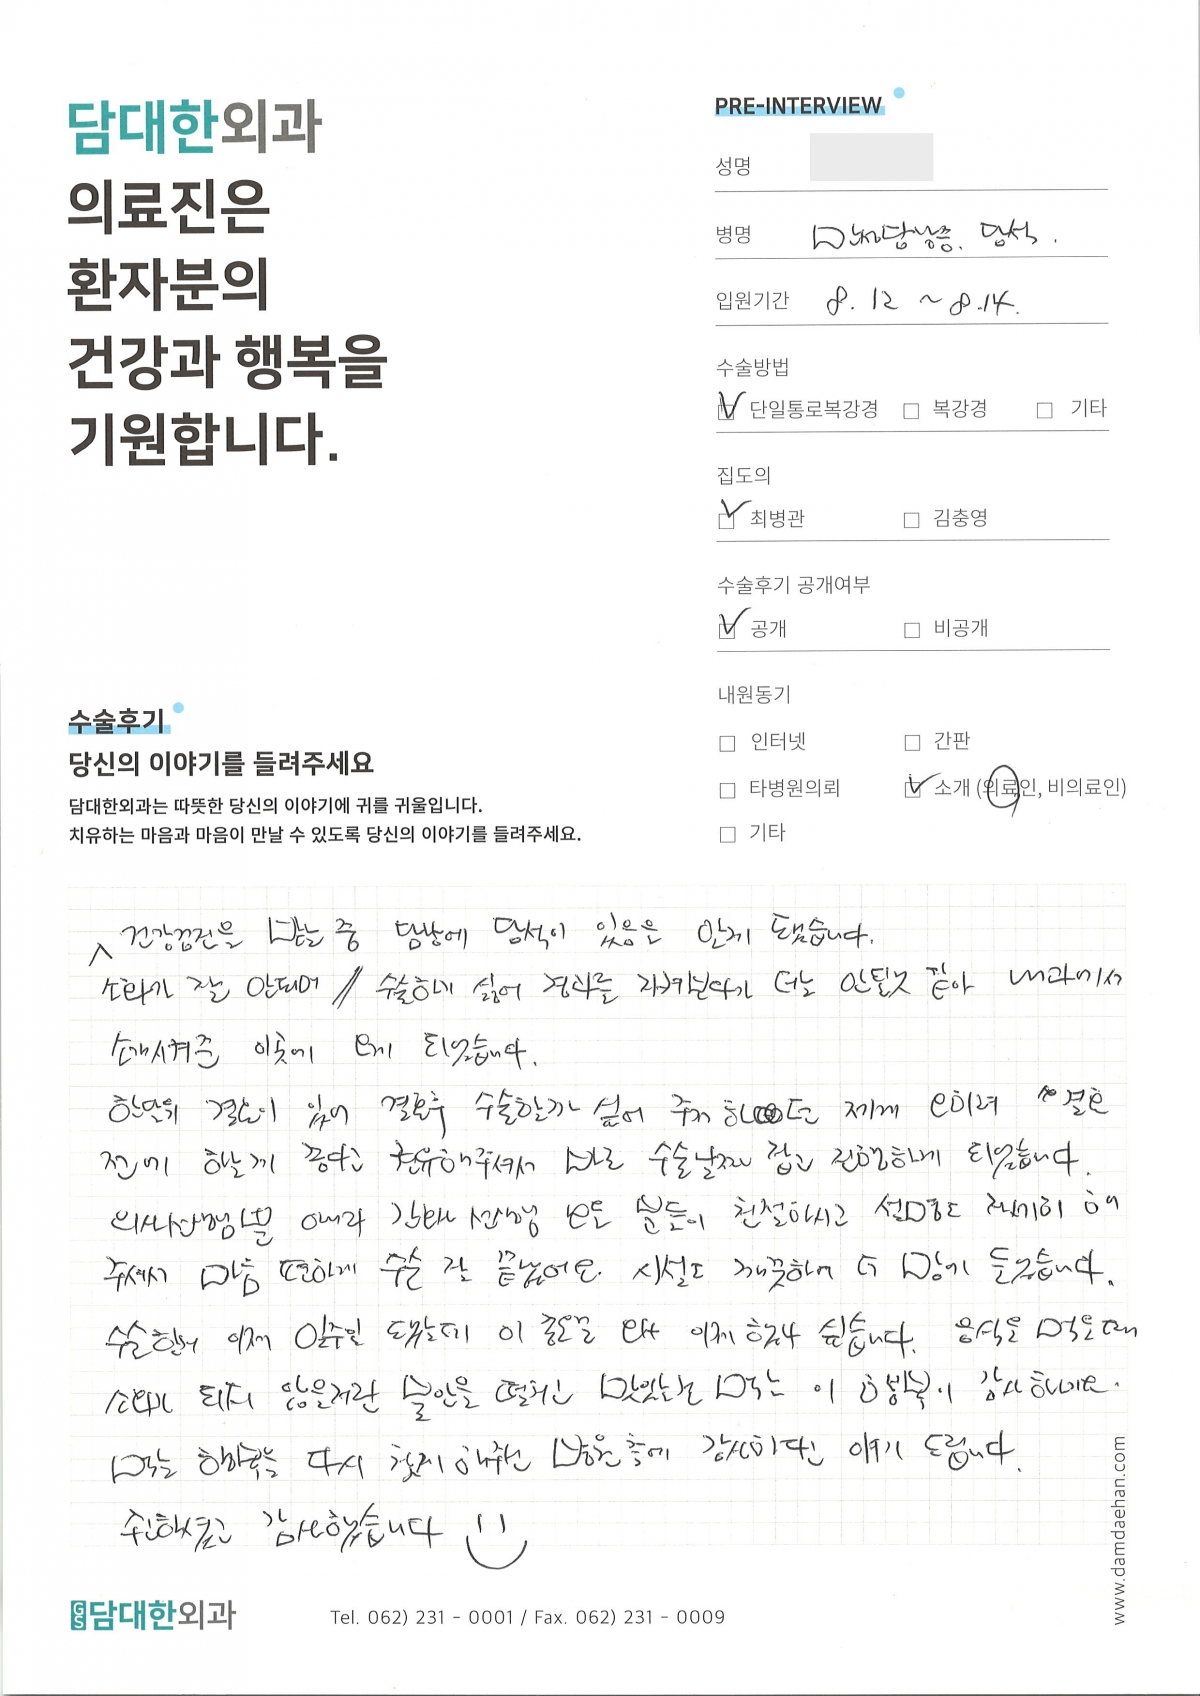 담대한외과
의료진은
환자분의
건강과 행복을
기원합니다.
PRE-INTERVIEW
성명
병명 만성담낭증, 담석.
입원기간 8. 12 ~ 8.14.
수술방법
단일통로복강경 복강경 기타
집도의
최병관 김충영
수술후기 공개여부
공개 비공개
내원동기
인터넷 간판
타병원의뢰 소개 (의료인, 비의료인)
기타
수술후기
당신의 이야기를 들려주세요
담대한외과는 따뜻한 당신의 이야기에 귀를 귀울입니다.
치유하는 마음과 마음이 만날 수 있도록 당신의 이야기를 들려주세요.
건강검진을 받는 중 담낭에 담석이 있음을 알게 됐습니다.
소화가 잘 안되며 수술하기 싫어 경과를 지켜본다가 더는 안될것 같아 내과에서
소개시켜준 이곳에 오게 되었습니다.
한달뒤 결혼이 있어 결혼후 수술할까 싶어 주저 하던 제게 오히려 결혼
전에 하는게 좋다고 권유해주셔서 바로 수술날짜 잡고 진행하게 되었습니다.
의사선생님뿐 아니라 간호사 선생님 모든 분들이 친절하시고 설명도 자세히 해
주셔서 마음 편하게 수술 잘 끝냈어요. 시설도 깨끗하여 더 맘에 들었습니다.
수술한지 이제 일주일 됐는데 이 좋은걸 왜 이제 했나 싶습니다. 음식을 먹을때
소화가 되지 않을거란 불안을 떨치고 맛있는걸 먹는 이 행복이 감사하네요.
먹는 행복을 다시 찾게 해주신 병원측에 감사하다고 얘기 드립니다.
친절하셨고 감사했습니다
GS담대한외과
Tel. 062) 231 - 0001 / Fax. 062) 231 - 0009
www.damdaehan.com